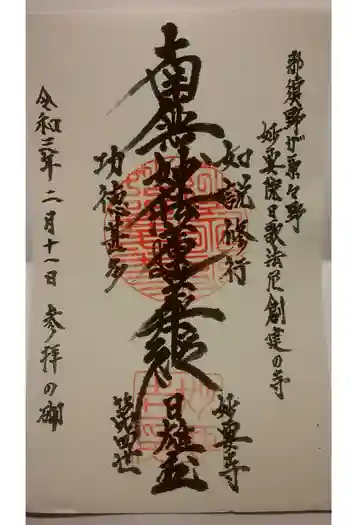 那須野が原々野
妙典院日歌法尼創建の寺
如説修行
南無妙法蓮華経
功徳甚多
妙典寺
日雄
第四世
令和三年 二月十一日 参拝の砌